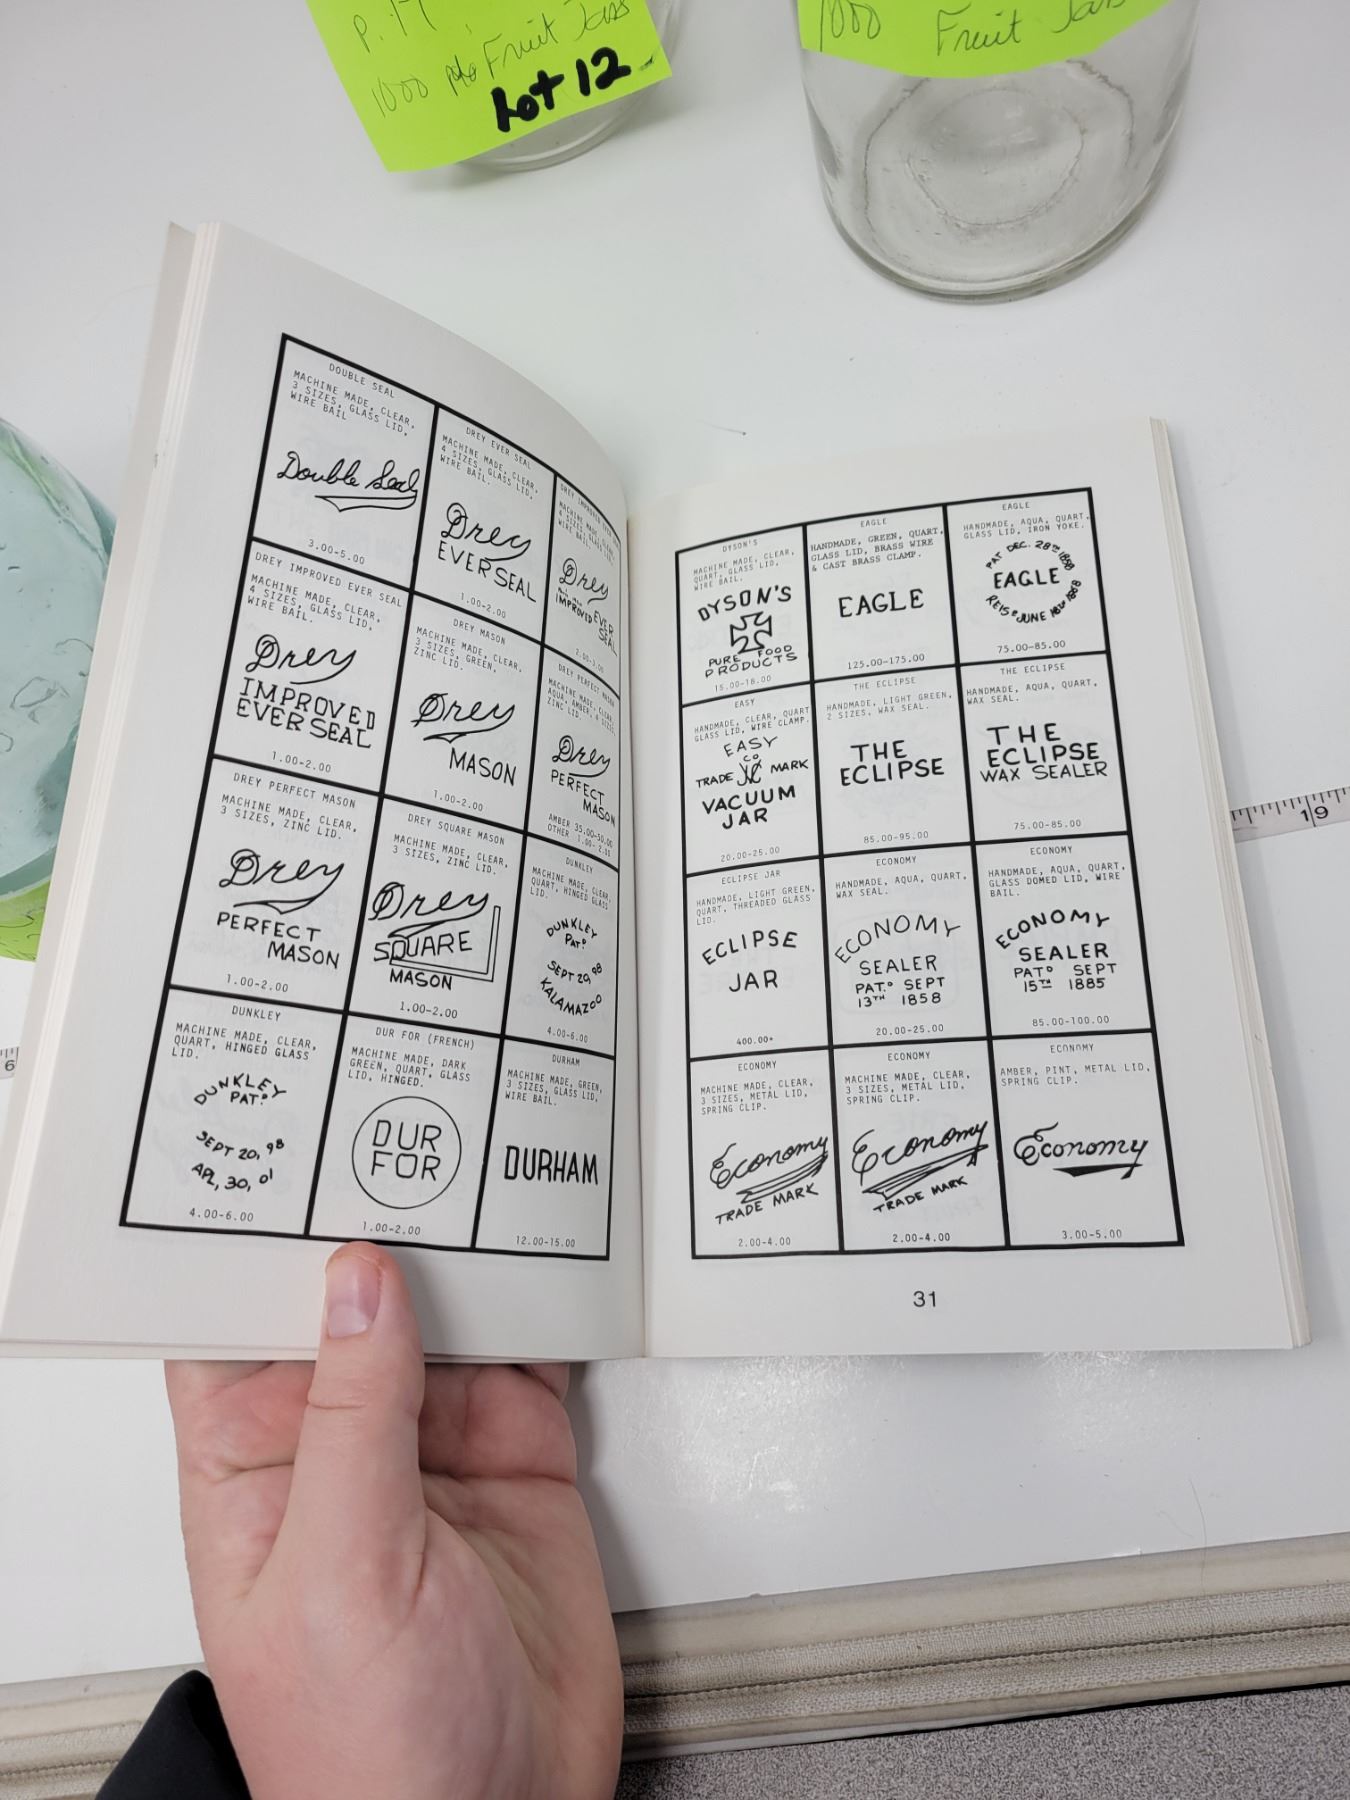 P. 17
1000 Fruit Jars
Lot 12
1000 Fruit Jars
DOUBLE SEAL
MACHINE MADE, CLEAR,
3 SIZES, GLASS LID,
WIRE BAIL
Double Seal
3.00-5.00
DREY EVER SEAL
MACHINE MADE, CLEAR,
4 SIZES, GLASS LID,
WIRE BAIL.
Drey
EVERSEAL
1.00-2.00
DREY IMPROVED EVER
MACHINE MADE, CLEAR,
4 SIZES, GLASS LID,
WIRE BAIL.
Drey
IMPROVED EVER
SEAL
2.00-3.00
DREY IMPROVED EVER SEAL
MACHINE MADE, CLEAR,
4 SIZES, GLASS LID,
WIRE BAIL.
Drey
IMPROVED
EVERSEAL
1.00-2.00
DREY MASON
MACHINE MADE, CLEAR,
3 SIZES, GREEN,
ZINC LID.
Drey
MASON
1.00-2.00
DREY PERFECT MASON
MACHINE MADE, CLEAR,
AQUA, AMBER, 4 SIZES,
ZINC LID.
Drey
PERFECT
MASON
AMBER 35.00-50.00
OTHER 1.00-2.00
DREY PERFECT MASON
MACHINE MADE, CLEAR,
3 SIZES, ZINC LID.
Drey
PERFECT
MASON
1.00-2.00
DREY SQUARE MASON
MACHINE MADE, CLEAR,
3 SIZES, ZINC LID.
Drey
SQUARE
MASON
1.00-2.00
DUNKLEY
MACHINE MADE, CLEAR,
QUART, HINGED GLASS
LID.
DUNKLEY
PATD
SEPT 20, 98
KALAMAZOO
4.00-6.00
DUNKLEY
MACHINE MADE, CLEAR,
QUART, HINGED GLASS
LID.
DUNKLEY
PATD
SEPT 20, 98
APL, 30, 01
4.00-6.00
DUR FOR (FRENCH)
MACHINE MADE, DARK
GREEN, QUART, GLASS
LID, HINGED.
DUR
FOR
1.00-2.00
DURHAM
MACHINE MADE, GREEN,
3 SIZES, GLASS LID,
WIRE BAIL.
DURHAM
12.00-15.00
DYSON'S
MACHINE MADE, CLEAR,
QUART, GLASS LID,
WIRE BAIL.
DYSON'S
PURE FOOD
PRODUCTS
15.00-18.00
EAGLE
HANDMADE, GREEN, QUART,
GLASS LID, BRASS WIRE
& CAST BRASS CLAMP.
EAGLE
125.00-175.00
EAGLE
HANDMADE, AQUA, QUART,
GLASS LID, IRON YOKE.
PAT DEC. 28TH 1858
EAGLE
REISD JUNE 16TH 1868
75.00-85.00
EASY
HANDMADE, CLEAR, QUART
GLASS LID, WIRE CLAMP.
EASY
TRADE VJC CO MARK
VACUUM
JAR
20.00-25.00
THE ECLIPSE
HANDMADE, LIGHT GREEN,
2 SIZES, WAX SEAL.
THE
ECLIPSE
85.00-95.00
THE ECLIPSE
HANDMADE, AQUA, QUART,
WAX SEAL.
THE
ECLIPSE
WAX SEALER
75.00-85.00
ECLIPSE JAR
HANDMADE, LIGHT GREEN,
QUART, THREADED GLASS
LID.
ECLIPSE
JAR
400.00+
ECONOMY
HANDMADE, AQUA, QUART,
WAX SEAL.
ECONOMY
SEALER
PAT.D SEPT
13TH 1858
20.00-25.00
ECONOMY
HANDMADE, AQUA, QUART,
GLASS DOMED LID, WIRE
BAIL.
ECONOMY
SEALER
PATD SEPT
15TH 1885
85.00-100.00
ECONOMY
MACHINE MADE, CLEAR,
3 SIZES, METAL LID,
SPRING CLIP.
Economy
TRADE MARK
2.00-4.00
ECONOMY
MACHINE MADE, CLEAR,
3 SIZES, METAL LID,
SPRING CLIP.
Economy
TRADE MARK
2.00-4.00
ECONOMY
AMBER, PINT, METAL LID,
SPRING CLIP.
Economy
3.00-5.00
31
19
6